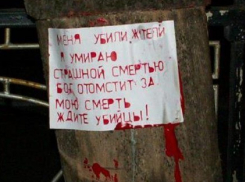 МЕНЯ УБИЛИ ЖИТЕЛИ
Я УМИРАЮ
СТРАШНОЙ СМЕРТЬЮ
БОГ ОТОМСТИТ ЗА
МОЮ СМЕРТЬ
ЖДИТЕ УБИЙЦЫ!